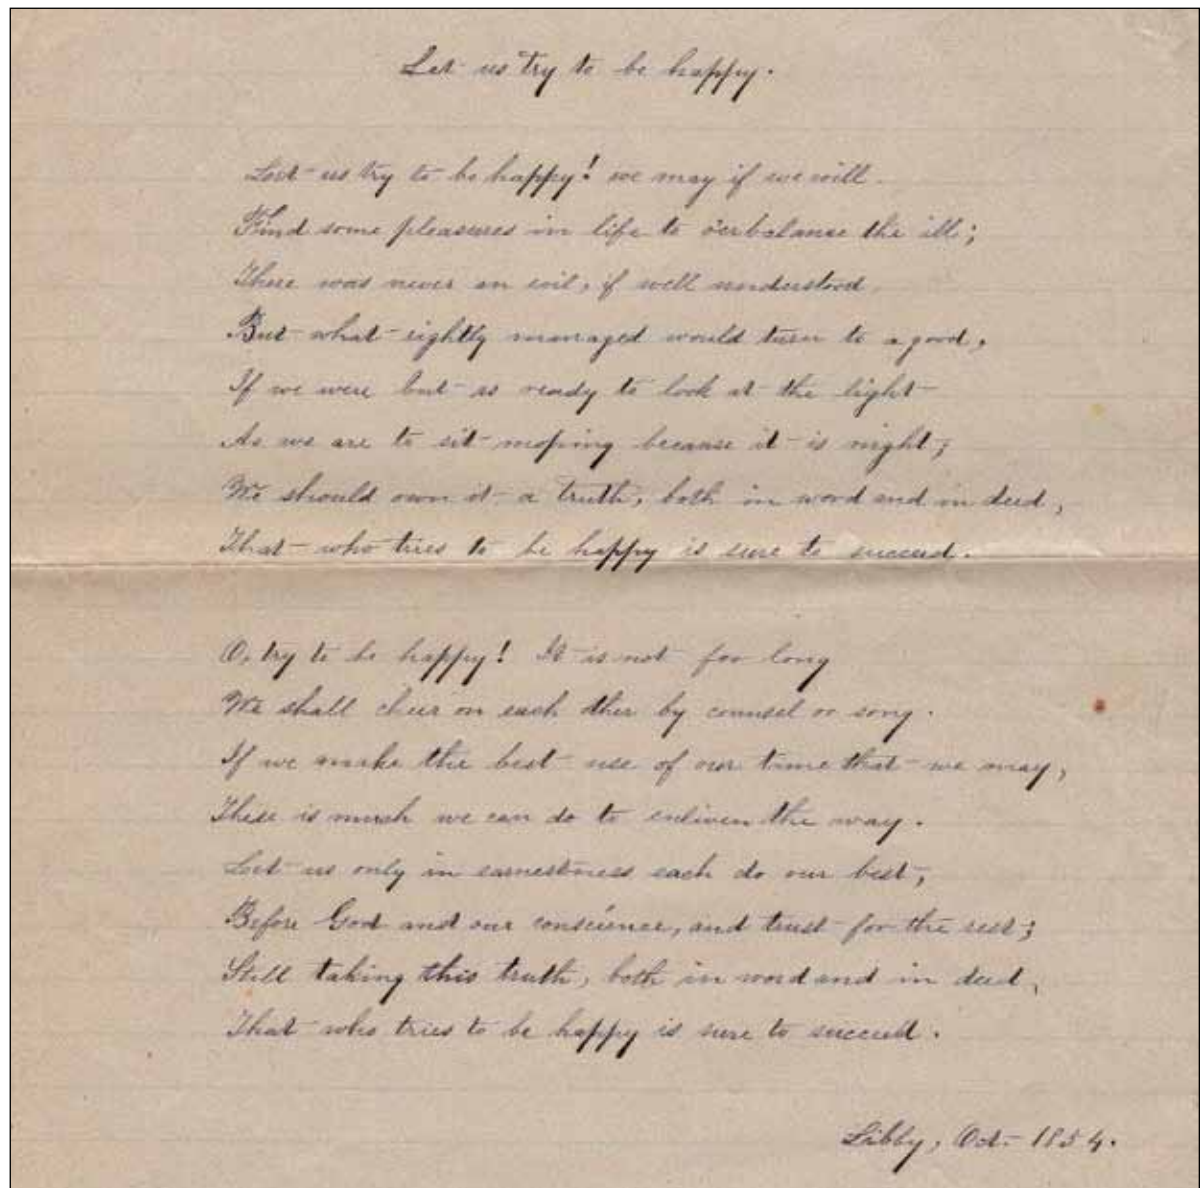 Let us try to be happy.
Let us try to be happy! we may if we will
Find some pleasures in life to o'erbalance the ill;
There was never an evil, if well understood,
But what rightly managed would turn to a good,
If we were but as ready to look at the light
As we are to sit moping because it is night;
We should own it a truth, both in word and in deed,
That who tries to be happy is sure to succeed.
O, try to be happy! It is not for long
We shall cheer on each other by counsel or song.
If we make the best use of our time that we may,
There is much we can do to enliven the way.
Let us only in earnestness each do our best,
Before God and our conscience, and trust for the rest;
Still taking this truth, both in word and in deed,
That who tries to be happy is sure to succeed.
Libby, Oct. 1854.